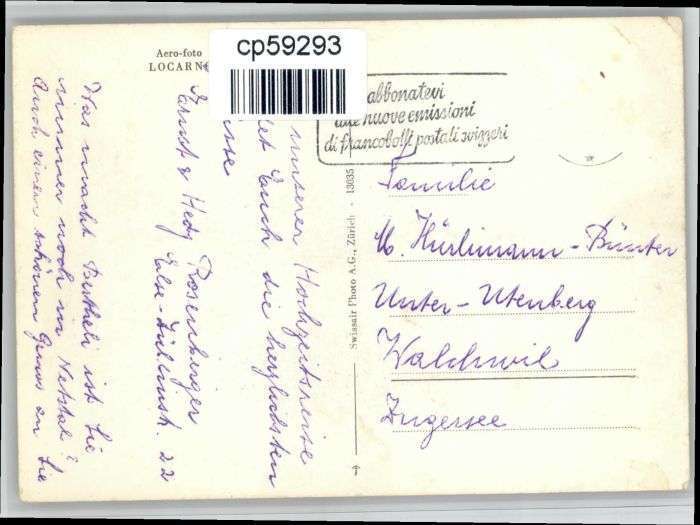 cp59293
Aero-foto
LOCARN
abbonatevi
alle nuove emissioni
di francobolli postali svizzeri
Swissair Photo A.G., Zürich - 13035
unserer Hochzeitsreise
Euch die herzlichsten
Ernst & Hedy Rosenberger
22
Was macht Betheli ist Sie
immer noch in Netstal?
Auch einen schönen Gruss an Sie
Familie
M. Hürlimann-Bünter
Unter-Utenberg
Walchwil
Zugersee